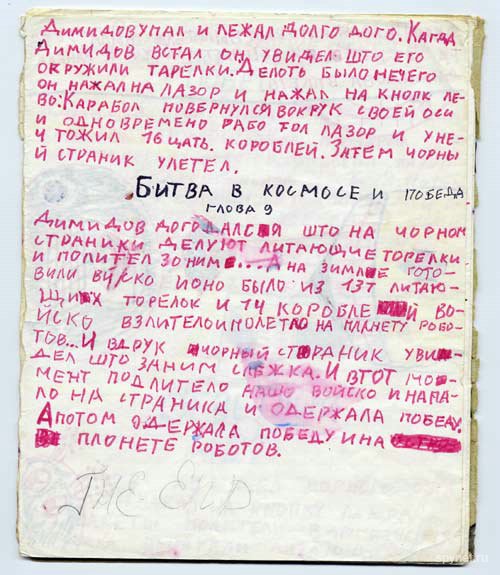 ДИМИДОВ УПАЛ И ЛЕЖАЛ ДОЛГО ДОГО. КАГДА
ДИМИДОВ ВСТАЛ ОН УВИДЕЛ ШТО ЕГО
ОКРУЖИЛИ ТАРЕЛКИ. ДЕЛОТЬ БЫЛО НЕЧЕГО
ОН НАЖАЛ НА ЛАЗОР И НАЖАЛ НА КНОПК ЛЕ-
ВО. КАРАБОЛ ПОВЕРНУЛСЯ ВОКРУК СВОЕЙ ОСИ
И ОДНОВРЕМЕНО РАБОТОЛ ЛАЗОР И УНЕ-
ЧТОЖИЛ 16ЦАТЬ. КОРОБЛЕЙ. ЗАТЕМ ЧОРНЫ
Й СТРАНИК УЛЕТЕЛ.
БИТВА В КОСМОСЕ И ПОБЕДА
ГЛОВА 9
ДИМИДОВ ДОГОДАЛСЯ ШТО НА ЧОРНОМ
СТРАНИКИ ДЕЛУЮТ ЛИТАЮЩИЕ ТОРЕЛКИ
И ПОЛИТЕЛ ЗО НИМ... А НА ЗИМЛЕ ГОТО-
ВИЛИ ВИСКО И ОНО БЫЛО ИЗ 13Т ЛИТАЮ-
ЩИХ ТОРЕЛОК И 14 КОРОБЛЕЙ ВО-
ЙСКО ВЗЛИТЕЛО И ПОЛЕТЕЛО НА ПЛАНЕТУ РОБО-
ТОВ... И ВДРУК ЧОРНЫЙ СТРАНИК УВИ-
ДЕЛ ШТО ЗА НИМ СЛЕЖКА. И В ТОТ МО-
МЕНТ ПОДЛИТЕЛО НАШО ВОЙСКО И НАПА-
ЛО НА СТРАНИКА И ОДЕРЖАЛА ПОБЕДУ.
А ПОТОМ ОДЕРЖАЛА ПОБЕДУ И НА
ПЛОНЕТЕ РОБОТОВ.
THE END
spynet.ru